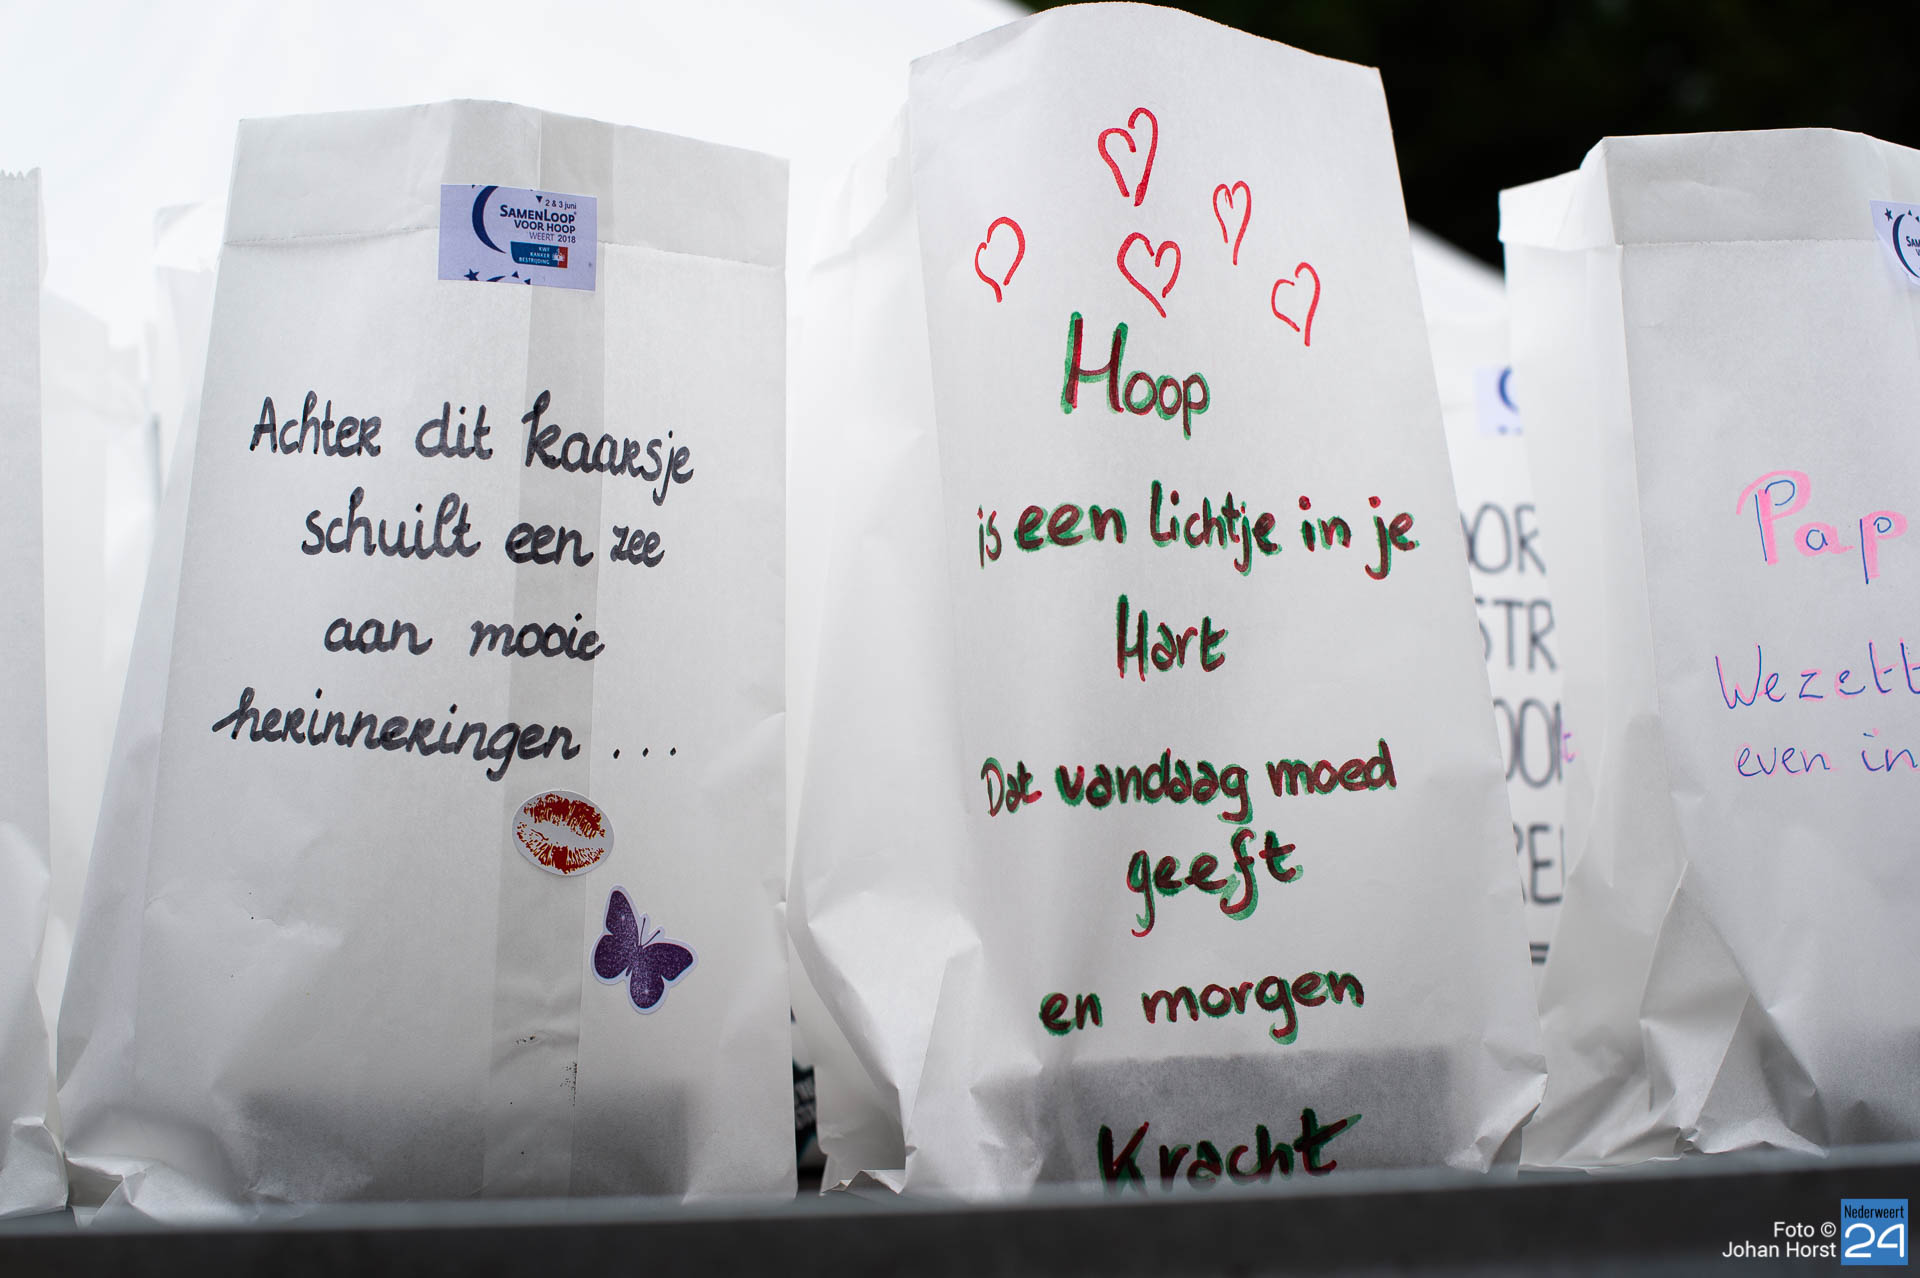 2 & 3 juni
SAMENLOOP
VOOR HOOP
WEERT 2018
KWF
KANKER
BESTRIJDING
Achter dit kaarsje
schuilt een zee
aan mooie
herinneringen ...
Hoop
is een lichtje in je
Hart
Dat vandaag moed
geeft
en morgen
Kracht
OOR
STR
Pap
Wezett
even in
Foto ©
Johan Horst
Nederweert
24